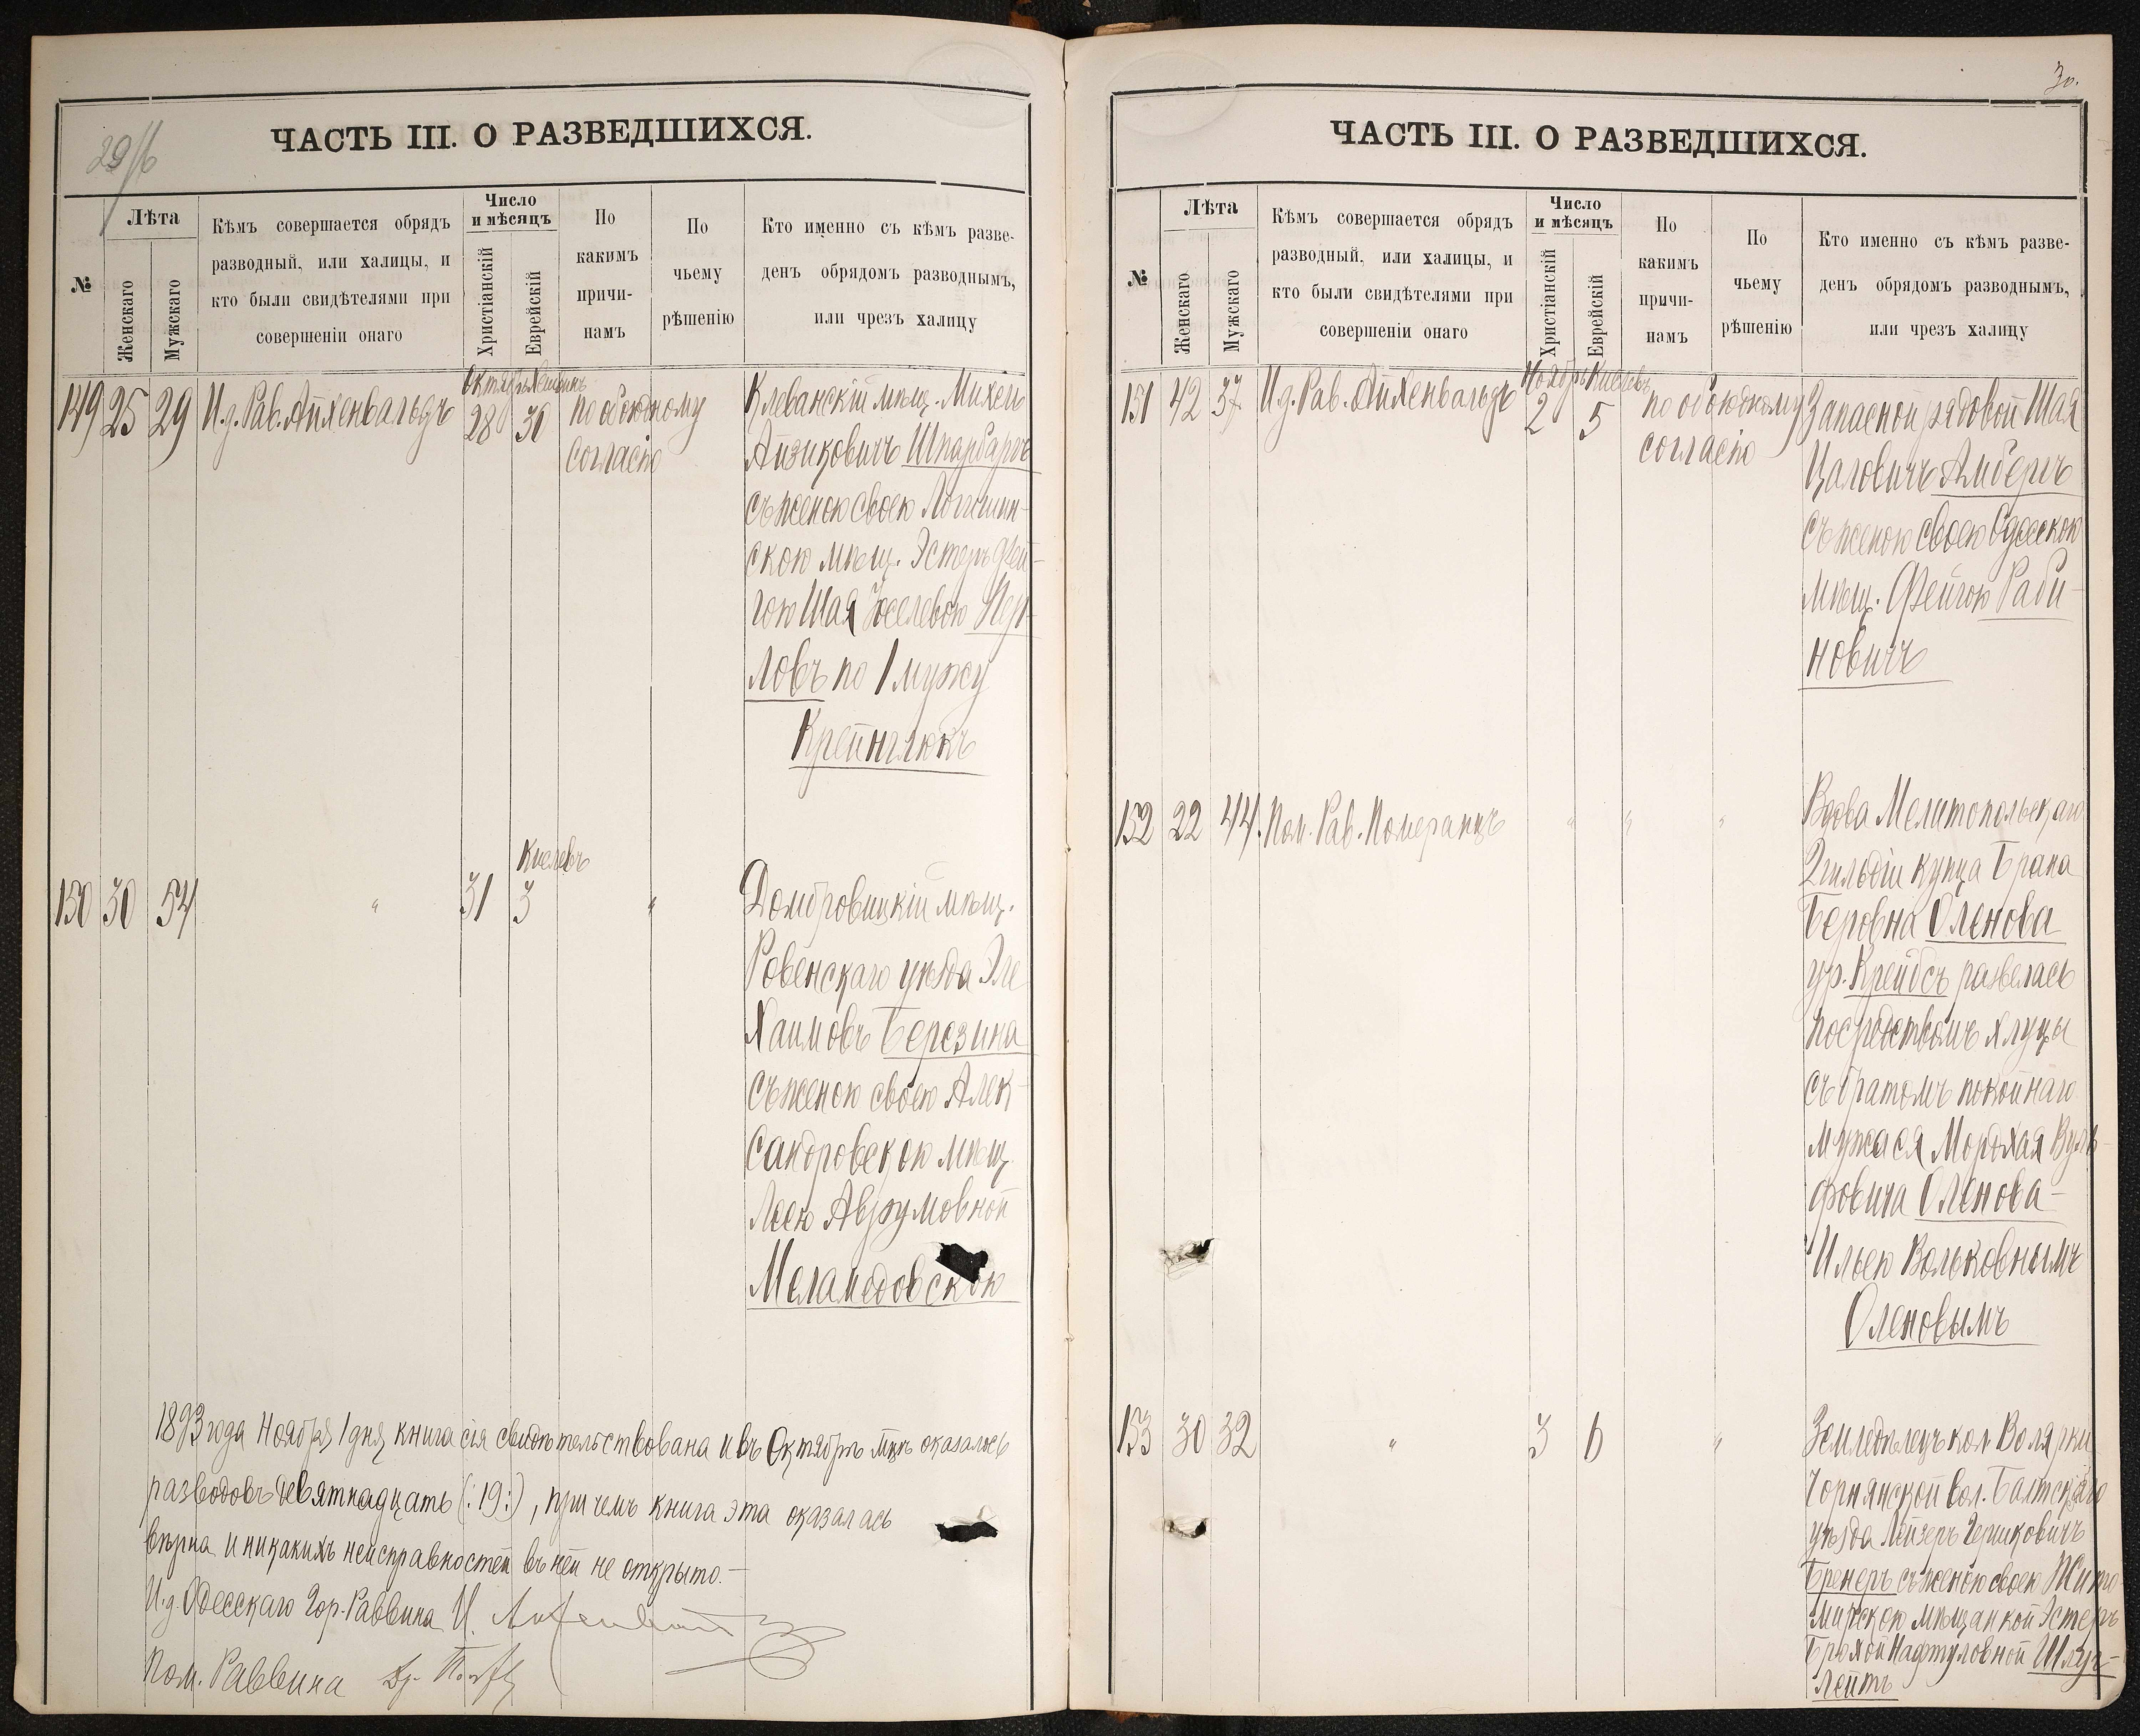 29/б
ЧАСТЬ III. О РАЗВЕДШИХСЯ.
№
Лѣта
Женскаго
Мужскаго
Кѣмъ совершается обрядъ
разводный, или халицы, и
кто были свидѣтелями при
совершеніи онаго
Число
и мѣсяцъ
Христіанскій
Еврейскій
По
какимъ
причи-
намъ
По
чьему
рѣшенію
Кто именно съ кѣмъ разве-
денъ обрядомъ разводнымъ,
или чрезъ халицу
149 25 29 И.д. Рав. Айхенвальдъ
Октябрь
28 30
по обоюдному
согласію
Клеванскій мѣщ. Михель
Айзиковичъ Шпарбаръ
съ женою своею
скою мѣщ. Эстеръ Фей-
гою Шая Іоселевою Пер-
ловъ по 1 мужу
Крейнглюкъ
Кислевъ
150 30 54 " 31 3 "
Домбровицкій мѣщ.
Ровенскаго уѣзда Эле
Хаимовъ Березина
съ женою своею Алек-
сандровскою мѣщ.
Леею Аврумовной
Меламедовскою
1893 года Ноября 1 дня книга сія свидѣтельствована и въ Октябрѣ мцѣ оказалось
разводовъ девятнадцать (:19:), при чемъ книга эта оказалась
вѣрна и никакихъ неисправностей въ ней не открыто.—
И.д. Одесскаго Гор. Раввина И.
Пом. Раввина
30.
ЧАСТЬ III. О РАЗВЕДШИХСЯ.
№
Лѣта
Женскаго
Мужскаго
Кѣмъ совершается обрядъ
разводный, или халицы, и
кто были свидѣтелями при
совершеніи онаго
Число
и мѣсяцъ
Христіанскій
Еврейскій
По
какимъ
причи-
намъ
По
чьему
рѣшенію
Кто именно съ кѣмъ разве-
денъ обрядомъ разводнымъ,
или чрезъ халицу
151 42 37 И.д. Рав. Айхенвальдъ
Ноябрь Кислевъ
2 5
по обоюдному
согласію
Запасной рядовой Шая
Цаловичъ Амбергъ
съ женою своею Одесскою
мѣщ. Фейгою Раби-
новичъ
152 22 44. Пом. Рав. Померанцъ " " "
Вдова Мелитопольскаго
2 гильдіи купца Брана
Беровна Оленова
ур. Крейдсъ развелась
посредствомъ хлуцы
съ братомъ покойнаго
мужа ся Мордхая Вуль-
фовича Оленова—
Ильею Вольковнымъ
Оленовымъ
153 30 32 " 3 6 "
Земледѣлецъ кол. Волярки
Чорнянской вол. Балтскаго
уѣзда Лейзеръ Гершковичъ
Бренеръ съ женою своею Жито-
мирскою мѣщанкой Эстеръ
Брыхой Нафтуловной Шлуг-
лейтъ